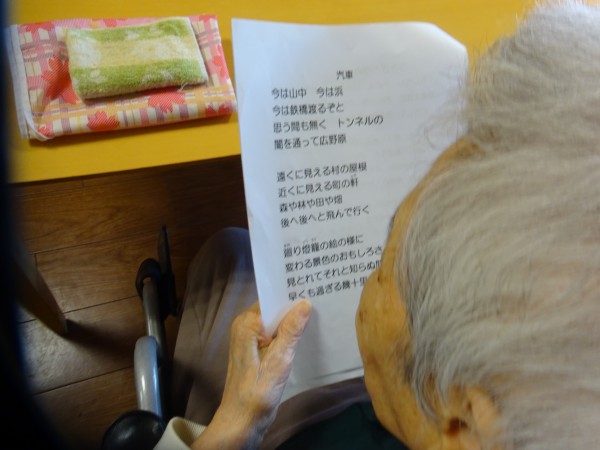 汽車
今は山中　今は浜
今は鉄橋渡るぞと
思う間も無く　トンネルの
闇を通って広野原
遠くに見える村の屋根
近くに見える町の軒
森や林や田や畑
後へ後へと飛んで行く
廻り燈籠の絵の様に
変わる景色のおもしろさ
見とれてそれと知らぬ
早くも過ぎる幾十里